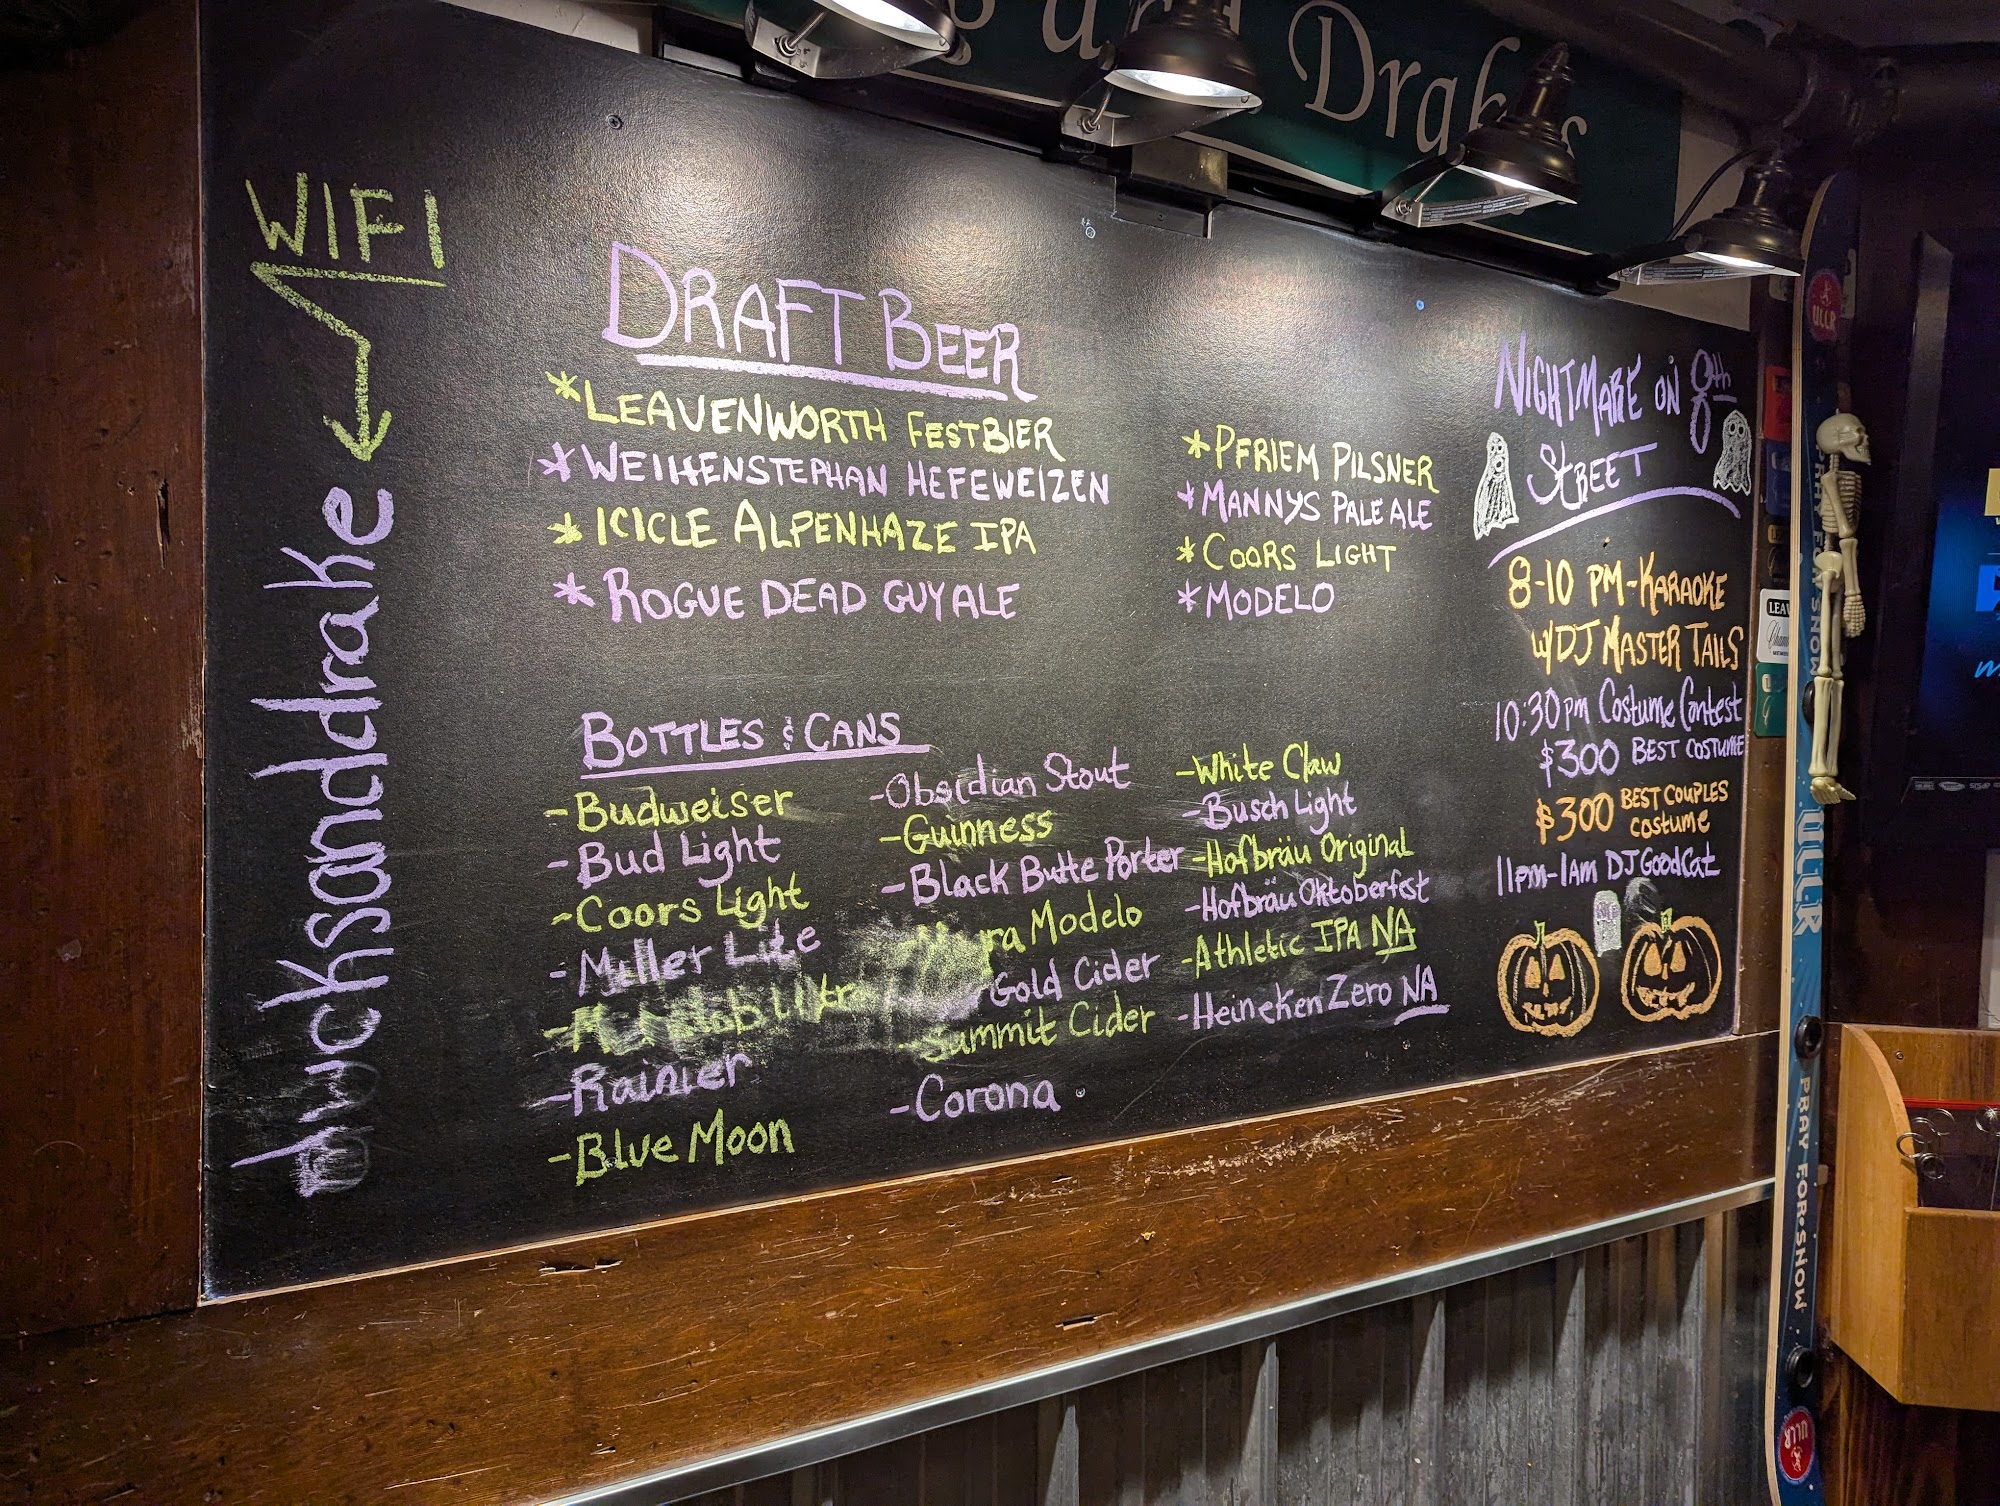 Drakes
WIFI
ducksanddrake
DRAFT BEER
*LEAVENWORTH FESTBIER
*WEIHENSTEPHAN HEFEWEIZEN
*ICICLE ALPENHAZE IPA
*ROGUE DEAD GUY ALE
*PFRIEM PILSNER
*MANNYS PALE ALE
*COORS LIGHT
*MODELO
BOTTLES & CANS
-Budweiser
-Bud Light
-Coors Light
-Miller Lite
-Rainier
-Blue Moon
-Obsidian Stout
-Guinness
-Black Butte Porter
Modelo
Gold Cider
Summit Cider
-Corona
-White Claw
-Busch Light
-Hofbräu Original
-Hofbräu Oktoberfest
-Athletic IPA NA
-Heineken Zero NA
NIGHTMARE ON 8th
STREET
8-10 PM-KARAOKE
W/DJ MASTER TAILS
10:30pm Costume Contest
$300 BEST COSTUME
$300 BEST COUPLES
COSTUME
11pm-1am DJ GoodCat
ULLR
PRAY FOR SNOW
ULLR
PRAY FOR SNOW
ULLR